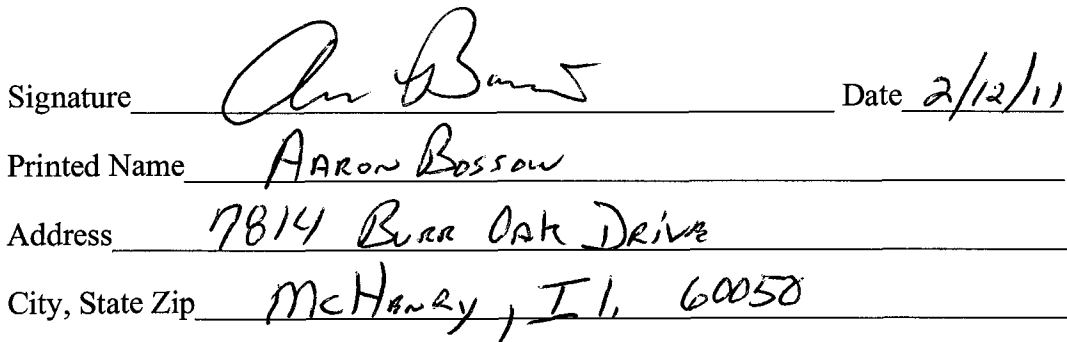 Signature Date 2/12/11
Printed Name AARON BOSSOW
Address 7814 BURR OAK DRIVE
City, State Zip McHENRY, Il. 60050